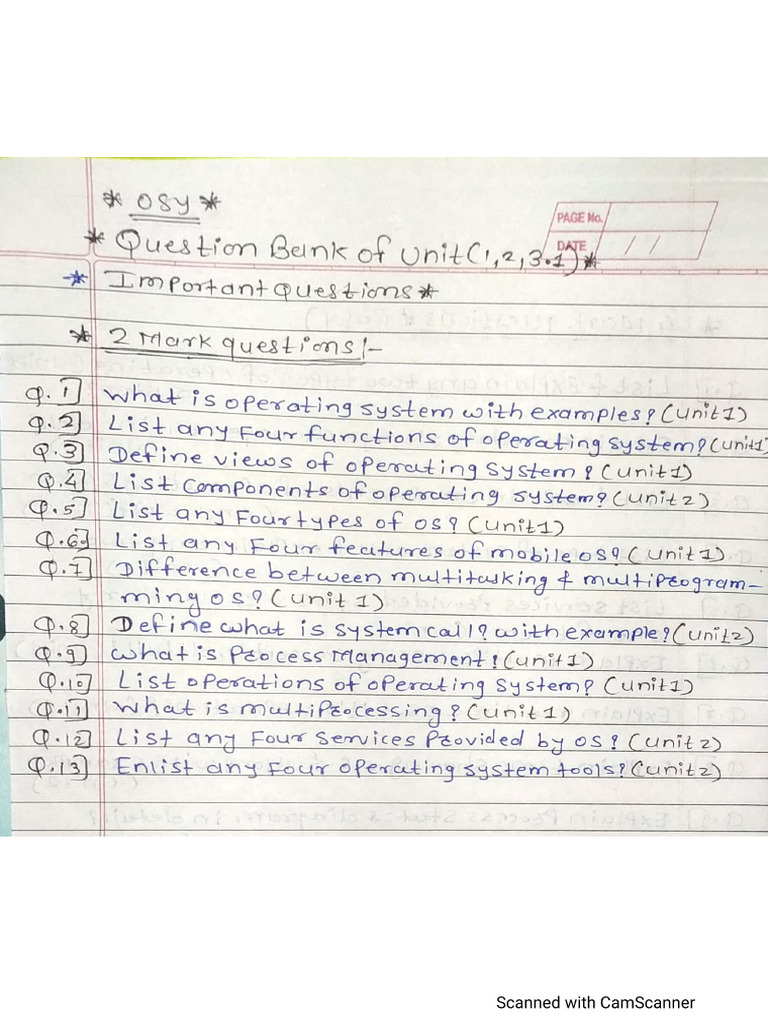 * OSY *
PAGE No.
* Question Bank of Unit(1,2,3.1)*
DATE / /
* Important Questions *
* 2 Mark questions:-
Q.1] What is operating system with examples? (unit1)
Q.2] List any Four functions of operating system? (unit1)
Q.3] Define views of operating system? (unit1)
Q.4] List components of operating system? (unit2)
Q.5] List any Four types of OS? (unit1)
Q.6] List any Four features of mobile OS? (unit1)
Q.7] Difference between multitasking & multiprogram-
ming OS? (unit 1)
Q.8] Define what is system call? with example? (unit2)
Q.9] What is Process Management? (unit1)
Q.10] List operations of operating system? (unit1)
Q.11] What is multiprocessing? (unit1)
Q.12] List any Four services Provided by OS? (unit2)
Q.13] Enlist any Four operating system tools? (unit2)
Scanned with CamScanner